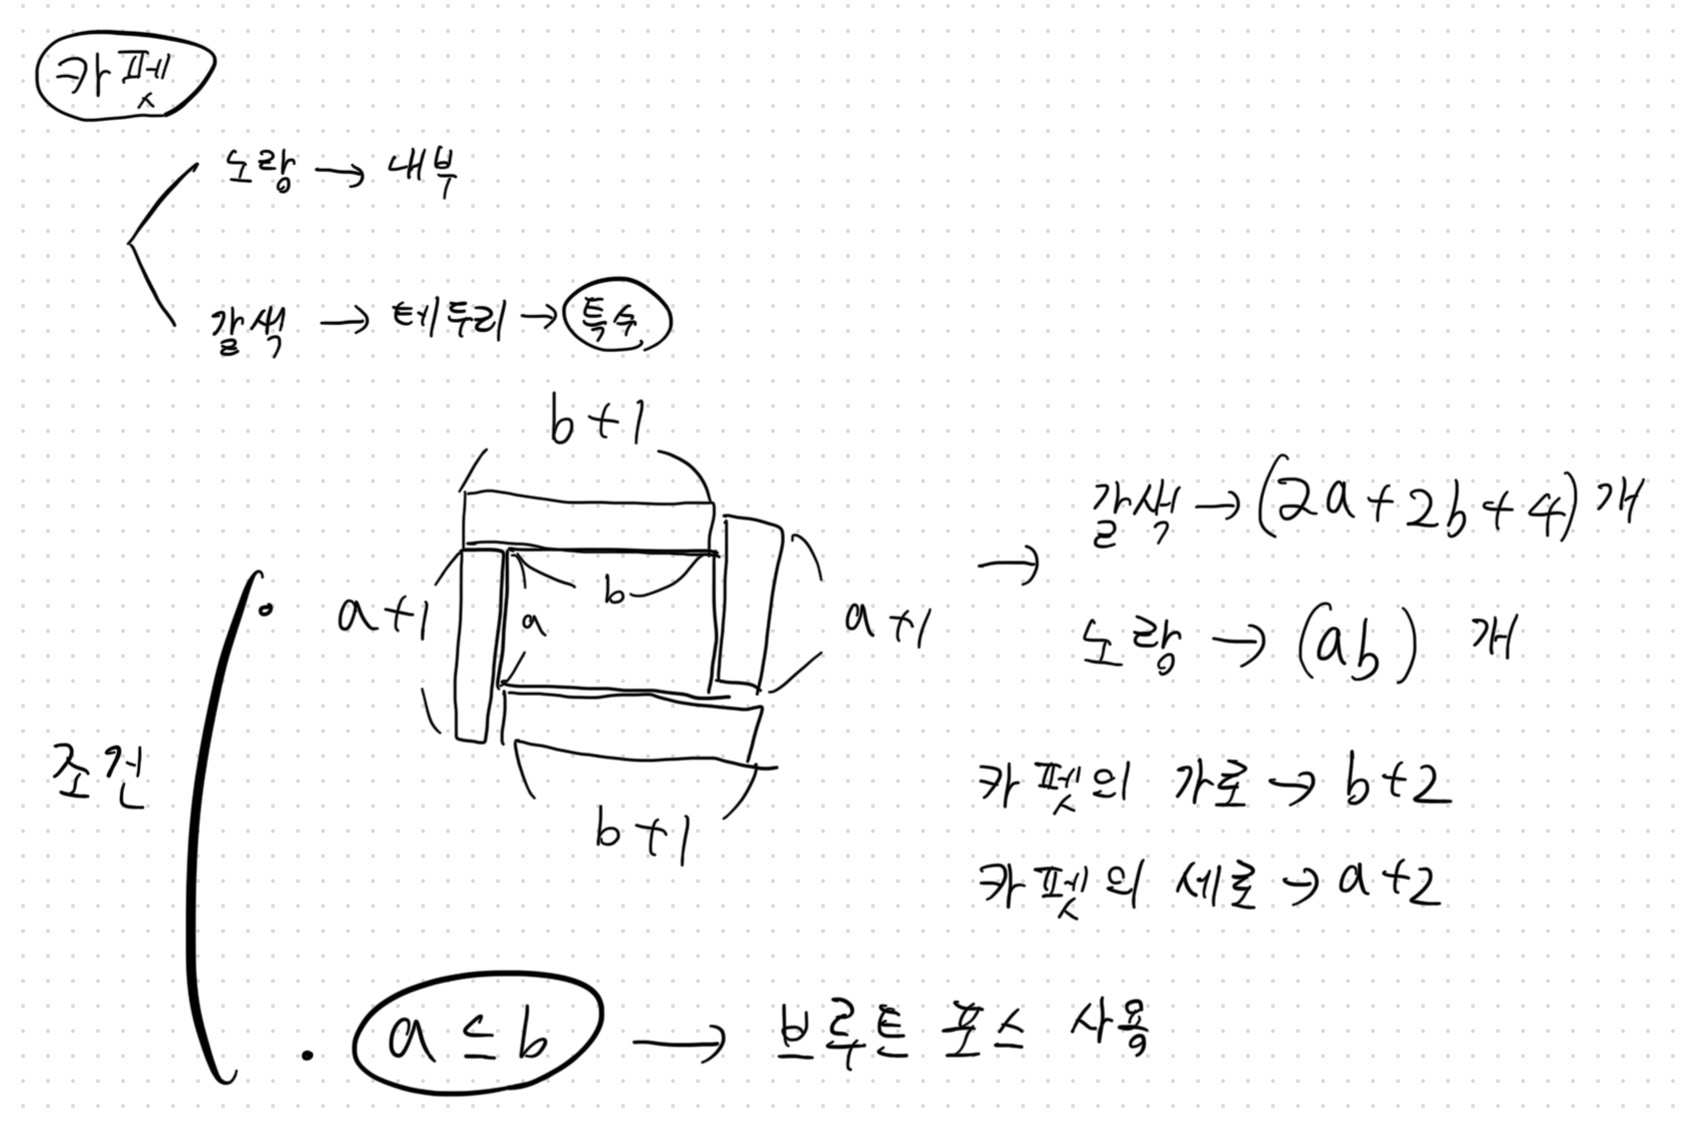 카펫
노랑 → 내부
갈색 → 테두리 → 특수
b+1
a+1
b
a
a+1
b+1
→
갈색 → (2a+2b+4)개
노랑 → (ab) 개
카펫의 가로 → b+2
카펫의 세로 → a+2
조건
· a ≤ b → 브루트 포스 사용